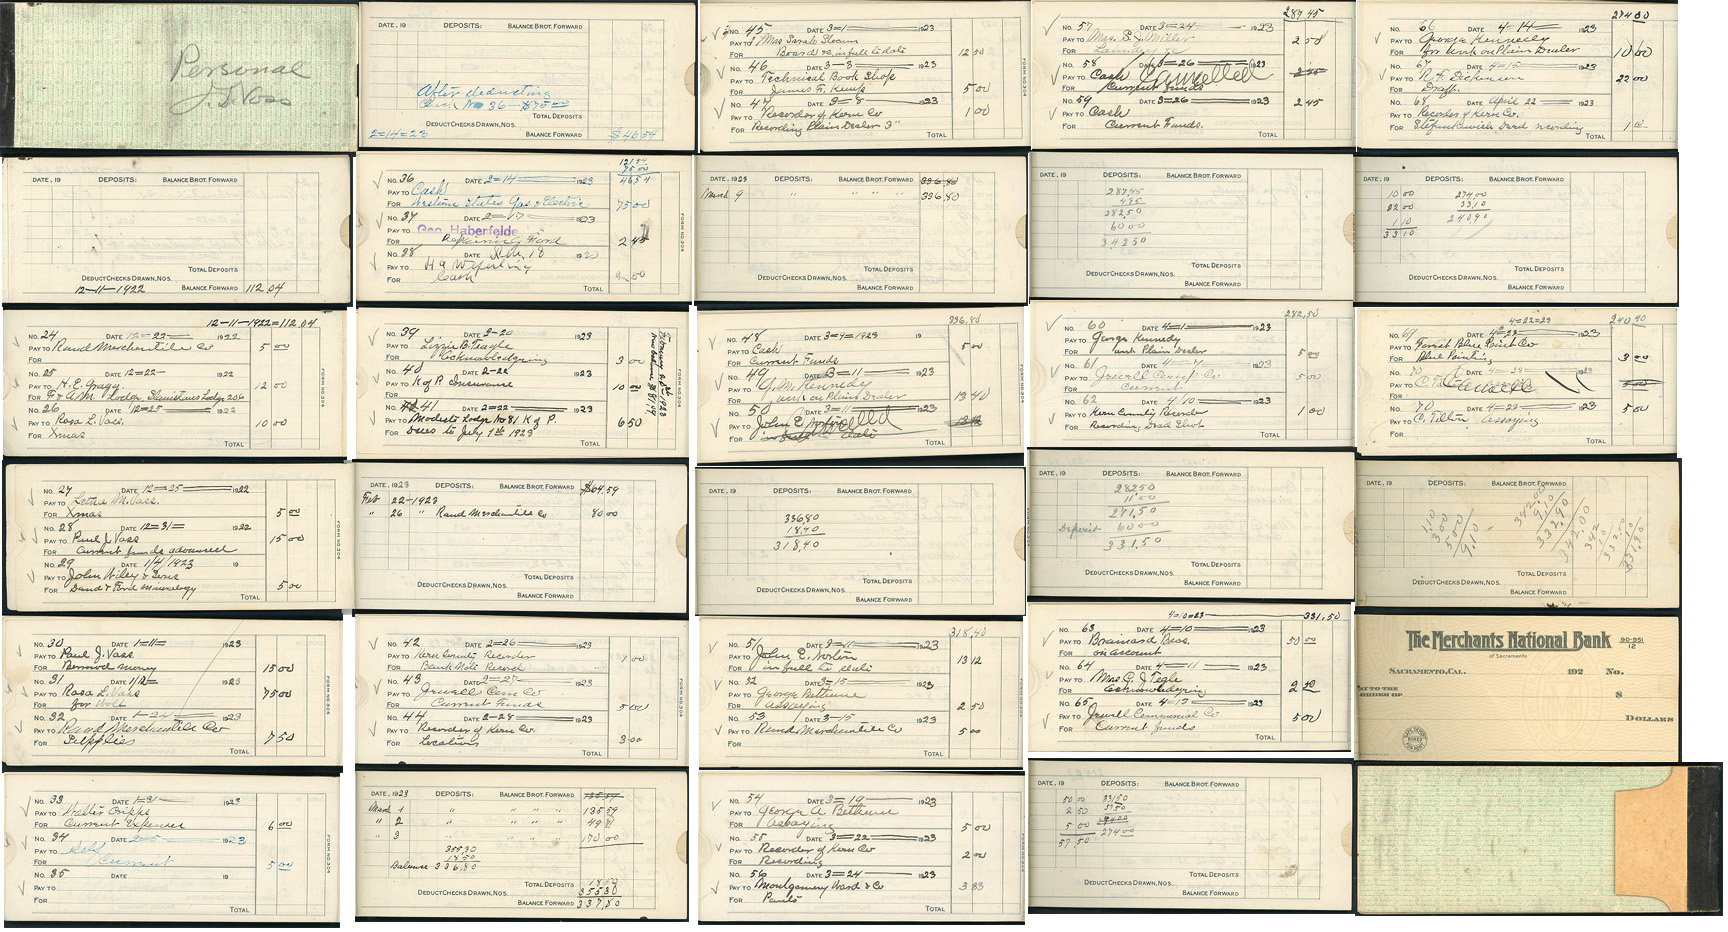 Personal
J. J. Voss
DATE, 19 DEPOSITS: BALANCE BROT. FORWARD
TOTAL DEPOSITS
DEDUCT CHECKS DRAWN, NOS.
12-11-1922 BALANCE FORWARD 112 04
12-11-1922=112.04
NO. 24 DATE 12-22- 1922
PAY TO Rand Merchantile Co 5 00
FOR
NO. 25 DATE 12-22- 1922
PAY TO H. E. Gragg 12 00
FOR F & A M Lodge Stanislaus Lodge 206
NO. 26 DATE 12-25- 1922
PAY TO Rosa L. Vass. 10 00
FOR Xmas
TOTAL
FORM NO. 304
NO. 27 DATE 12-25 1922
PAY TO M. Vass.
FOR Xmas 5 00
NO. 28 DATE 12-31- 1922
PAY TO Paul J. Vass 15 00
FOR Current funds advanced
NO. 29 DATE 1/4/1923 19
PAY TO John Wiley & Sons
FOR Dana & Ford Mineralogy 5 00
TOTAL
FORM NO. 304
NO. 30 DATE 1-11- 1923
PAY TO Paul J. Vass.
FOR Borrowed money 15 00
NO. 31 DATE 1/12- 1923
PAY TO Rosa L. Vass 75 00
FOR
NO. 32 DATE 1-24 1923
PAY TO Rand Merchantile Co
FOR Supplies 7 50
TOTAL
FORM NO. 304
NO. 33 DATE 1-31- 1923
PAY TO Walter Cripps
FOR Current Expenses 6 00
NO. 34 DATE 2-5- 1923
PAY TO Self
FOR Current 5 00
NO. 35 DATE 19
PAY TO
FOR
TOTAL
FORM NO. 304
DATE, 19 DEPOSITS: BALANCE BROT. FORWARD
After deducting
Check No 36-$75.00
TOTAL DEPOSITS
DEDUCT CHECKS DRAWN, NOS.
2-14-23 BALANCE FORWARD $46.54
121.54
75.00
NO. 36 DATE 2-14 1923 46.54
PAY TO Cash
FOR Western States Gas & Electric 75 00
NO. 37 DATE 2-17 1923
PAY TO Geo. Haberfelde
FOR Repairing Ford 2 45
NO. 38 DATE 18
PAY TO
FOR Cash 9 50
TOTAL
FORM NO. 304
NO. 39 DATE 2-20 1923
PAY TO Lizzie B. Teagle
FOR Acknowledging 3 00
NO. 40 DATE 2-22 1923
PAY TO K of P. Insurance
FOR 10 00
NO. 41 DATE 2-22 1923
PAY TO Modesto Lodge No 81 K of P.
FOR Dues to July 1st 1923 6 50
TOTAL
FORM NO. 304
DATE, 1923 DEPOSITS: BALANCE BROT. FORWARD $64.59
Feb 22-1923
" 26 " Rand Merchantile Co 80 00
TOTAL DEPOSITS
DEDUCT CHECKS DRAWN, NOS.
BALANCE FORWARD
NO. 42 DATE 2-26 1923
PAY TO Kern County Recorder 1 00
FOR Record
NO. 43 DATE 2-27 1923
PAY TO Jewell Com Co
FOR Current Funds 5 00
NO. 44 DATE 2-28 1923
PAY TO Recorder of Kern Co.
FOR Locations 3.00
TOTAL
FORM NO. 304
DATE, 1923 DEPOSITS: BALANCE BROT. FORWARD
March 1 " " " " 135 59
" 2 " " " " 49
" 3 " " " " 170 00
355.30
18.50
Balance 336.80
TOTAL DEPOSITS
DEDUCT CHECKS DRAWN, NOS. 355 30
BALANCE FORWARD
NO. 45 DATE 3-1- 1923
PAY TO Mrs Sarah Slocum
FOR Board in full to date 12 50
NO. 46 DATE 3-3 1923
PAY TO Technical Book Shop
FOR James F. Kemp 5 00
NO. 47 DATE 3-8 1923
PAY TO Recorder of Kern Co 1 00
FOR Recording Plain Dealer 3"
TOTAL
FORM NO. 304
DATE, 1923 DEPOSITS: BALANCE BROT. FORWARD 336.80
March 9 " " " " 336.80
TOTAL DEPOSITS
DEDUCT CHECKS DRAWN, NOS.
BALANCE FORWARD
336.80
NO. 48 DATE 3-9-1923 19
PAY TO Cash 5 00
FOR Current Funds
NO. 49 DATE 3-11 1923
PAY TO G. M. Kennedy
FOR work on Plain Dealer 13 40
NO. 50 DATE 3-11 1923
PAY TO John E. Norton
FOR in full to date
Cancelled
TOTAL
FORM NO. 304
DATE, 19 DEPOSITS: BALANCE BROT. FORWARD
336.80
18.40
318.40
TOTAL DEPOSITS
DEDUCT CHECKS DRAWN, NOS.
BALANCE FORWARD
318.40
NO. 51 DATE 3-11 1923
PAY TO John E. Norton
FOR in full to date 13 12
NO. 52 DATE 3-15 1923
PAY TO George Bethune
FOR Assaying 2 50
NO. 53 DATE 3-15 1923
PAY TO Rand Merchantile Co 5 00
FOR
TOTAL
FORM NO. 304
NO. 54 DATE 3-19 1923
PAY TO George A Bethune
FOR Assaying 5 00
NO. 55 DATE 3-22 1923
PAY TO Recorder of Kern Co
FOR Recording 2 00
NO. 56 DATE 3-24 1923
PAY TO Montgomery Ward & Co 3 83
FOR Pants
TOTAL
FORM NO. 304
287.45
NO. 57 DATE 3-24- 1923
PAY TO Mrs. S. J. Miller 2 50
FOR Laundry
NO. 58 DATE 3-26 1923
PAY TO Cash Cancelled 2 45
FOR Current funds
NO. 59 DATE 3-26 1923
PAY TO Cash 2 45
FOR Current Funds.
TOTAL
FORM NO. 304
DATE, 19 DEPOSITS: BALANCE BROT. FORWARD
287.45
4.95
282.50
60.00
342.50
TOTAL DEPOSITS
DEDUCT CHECKS DRAWN, NOS.
BALANCE FORWARD
282.50
NO. 60 DATE 4-1- 1923
PAY TO George Kennedy
FOR work Plain Dealer 5 00
NO. 61 DATE 4-7 1923
PAY TO Jewell Com'l Co 5 00
FOR Current
NO. 62 DATE 4/10 1923
PAY TO Kern County Recorder 1 00
FOR Recording
TOTAL
DATE, 19 DEPOSITS: BALANCE BROT. FORWARD
282.50
11.00
271.50
Deposit 60.00
331.50
TOTAL DEPOSITS
DEDUCT CHECKS DRAWN, NOS.
BALANCE FORWARD
4-10-23 331.50
NO. 63 DATE 4-10 1923
PAY TO Brainard Bros. 50 00
FOR on account
NO. 64 DATE 4-11 1923
PAY TO Mrs C. J. Tegle
FOR Acknowledging 2 50
NO. 65 DATE 4-12 1923
PAY TO Jewell Commercial Co 5 00
FOR Current funds
TOTAL
DATE, 19 DEPOSITS: BALANCE BROT. FORWARD
50 00 331.50
2 50 57.50
5 00 274.00
57.50
TOTAL DEPOSITS
DEDUCT CHECKS DRAWN, NOS.
BALANCE FORWARD
274.00
NO. 66 DATE 4-14 1923
PAY TO George Kennedy
FOR for work on Plain Dealer 10 00
NO. 67 DATE 4-15 1923
PAY TO R. F. Dickinson 22 00
FOR Draft.
NO. 68 DATE April 22 1923
PAY TO Recorder of Kern Co.
FOR Deed recording 1 00
TOTAL
DATE, 19 DEPOSITS: BALANCE BROT. FORWARD
10 00 274.00
22 00 33.10
1 10 240.90
33 10
TOTAL DEPOSITS
DEDUCT CHECKS DRAWN, NOS.
BALANCE FORWARD
4-22-23 240.90
NO. 69 DATE 4-23 1923
PAY TO Forest Blue Print Co
FOR Blue Printing 3 00
NO. 70 DATE 4-23 1923
PAY TO Cancelled 5 00
FOR
NO. 70 DATE 4-23 1923
PAY TO C. Tilton assaying 5 00
FOR
TOTAL
DATE, 19 DEPOSITS: BALANCE BROT. FORWARD
1.10
3.00
5.00
9.10
342.00
9.10
332.90
TOTAL DEPOSITS
DEDUCT CHECKS DRAWN, NOS.
BALANCE FORWARD
The Merchants National Bank 90-951
of Sacramento 12
SACRAMENTO, CAL. 192 NO.
PAY TO THE
ORDER OF $
DOLLARS